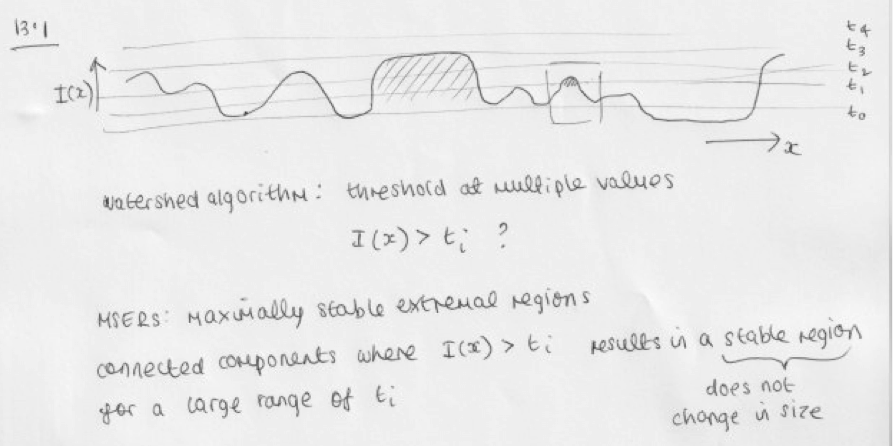 13.1
t4
t3
t2
t1
t0
I(x)
x
Watershed algorithm: threshold at multiple values
I(x) > ti ?
MSERS: Maximally stable extremal regions
connected components where I(x) > ti results in a stable region
for a large range of ti
does not
change in size